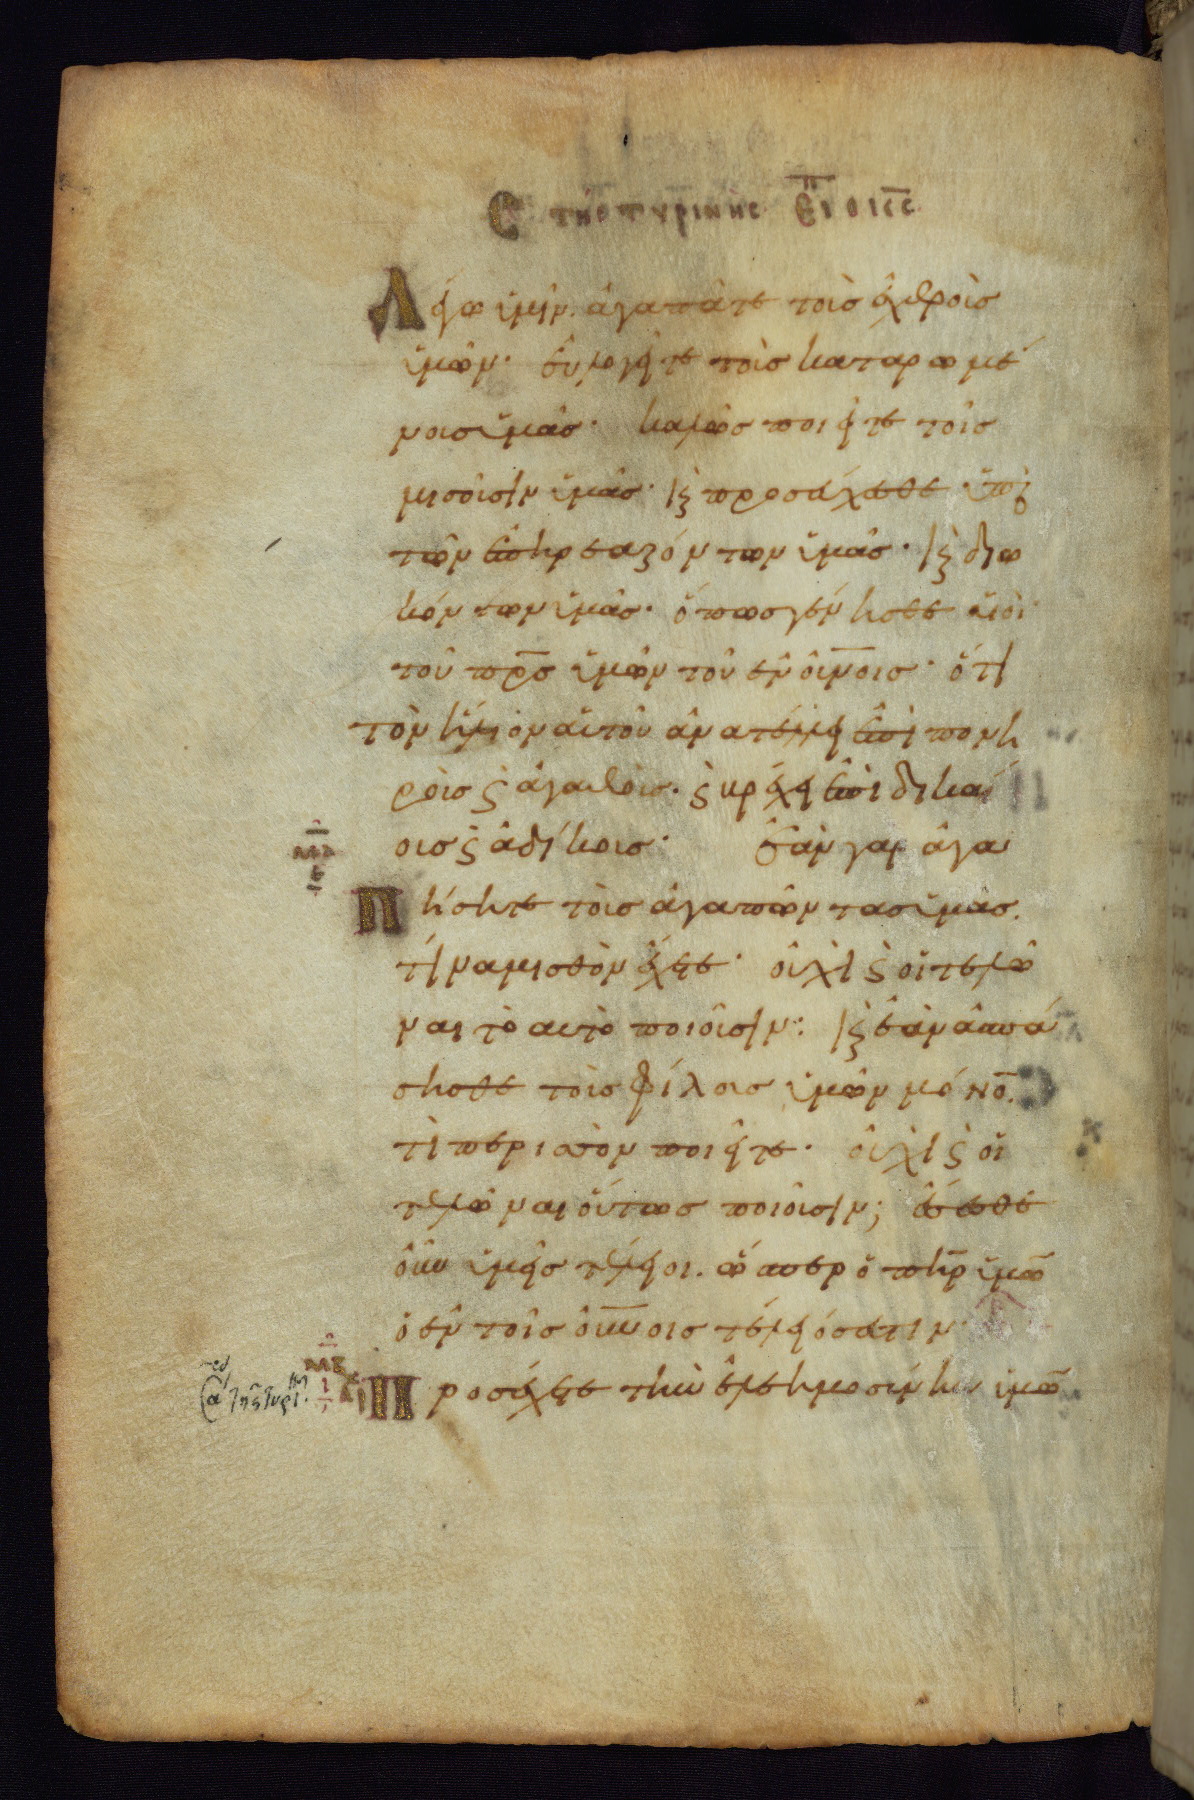 τῆς τυρινῆς
Λέγω ὑμῖν. ἀγαπᾶτε τοὺς ἐχθροὺς
ὑμῶν· εὐλογεῖτε τοὺς καταρωμέ
νους ὑμᾶς· καλῶς ποιεῖτε τοῖς
μισοῦσιν ὑμᾶς· καὶ προσεύχεσθε ὑπὲρ
τῶν ἐπηρεαζόντων ὑμᾶς· καὶ διω
κόντων ὑμᾶς· ὅπως γένησθε υἱοὶ
τοῦ πρς ὑμῶν τοῦ ἐν οὐνοις· ὅτι
τὸν ἥλιον αὐτοῦ ἀνατέλλει ἐπὶ πονη
ροὺς καὶ ἀγαθούς· καὶ βρέχει ἐπὶ δικαί
ους καὶ ἀδίκους· Ἐὰν γὰρ ἀγα
πήσητε τοὺς ἀγαπῶντας ὑμᾶς.
τίνα μισθὸν ἔχετε· οὐχὶ καὶ οἱ τελῶ
ναι τὸ αὐτὸ ποιοῦσιν: καὶ ἐὰν ἀσπά
σησθε τοὺς φίλους ὑμῶν μόνο̅.
τί περισσὸν ποιεῖτε· οὐχὶ καὶ οἱ
τελῶναι οὕτως ποιοῦσιν; ἔσεσθε
οὖν ὑμεῖς τέλειοι. ὥσπερ ὁ πηρ ὑμῶ̅
ὁ ἐν τοῖς οὐνοις τέλειός ἐστιν·
Προσέχετε τὴν ἐλεημοσύνην ὑμῶ̅